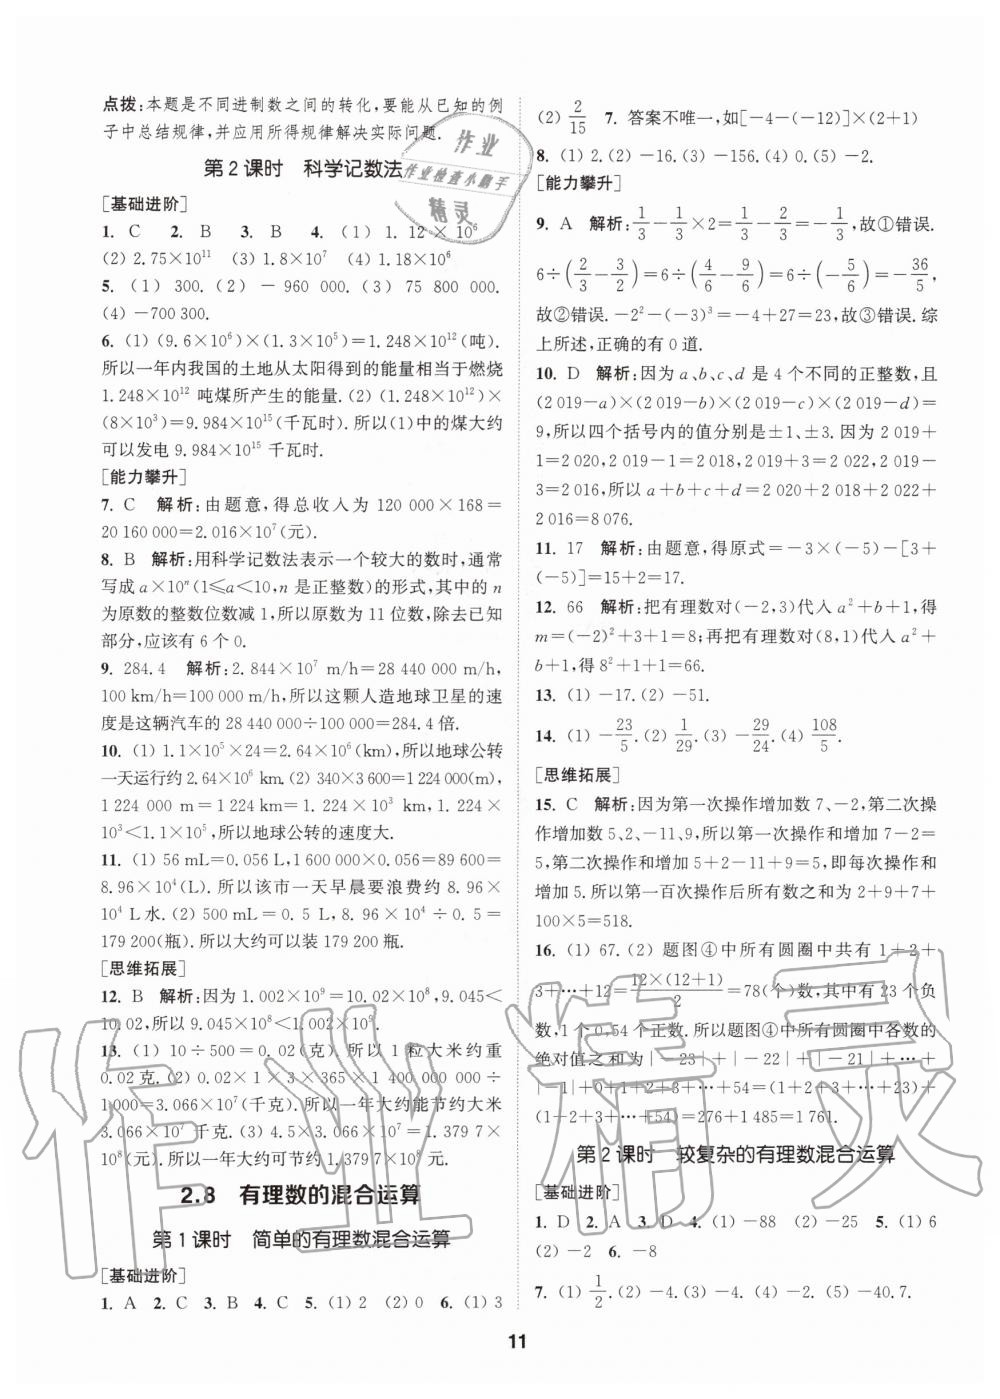 点拨:本题是不同进制数之间的转化,要能从已知的例
子中总结规律,并应用所得规律解决实际问题.
第2课时 科学记数法
[基础进阶]
1. C 2. B 3. B 4. (1) 1.12×10⁶
(2) 2.75×10¹¹ (3) 1.8×10⁷ (4) 1.18×10⁶
5. (1) 300. (2) -960 000. (3) 75 800 000.
(4) -700 300.
6. (1) (9.6×10⁶)×(1.3×10⁵)=1.248×10¹²(吨).
所以一年内我国的土地从太阳得到的能量相当于燃烧
1.248×10¹² 吨煤所产生的能量. (2) (1.248×10¹²)×
(8×10³)=9.984×10¹⁵(千瓦时). 所以(1)中的煤大约
可以发电 9.984×10¹⁵ 千瓦时.
[能力攀升]
7. C 解析:由题意,得总收入为 120 000×168=
20 160 000=2.016×10⁷(元).
8. B 解析:用科学记数法表示一个较大的数时,通常
写成 a×10ⁿ(1≤a<10,n 是正整数)的形式,其中的 n
为原数的整数位数减 1,所以原数为 11 位数,除去已知
部分,应该有 6 个 0.
9. 284.4 解析:2.844×10⁷ m/h=28 440 000 m/h,
100 km/h=100 000 m/h,所以这颗人造地球卫星的速
度是这辆汽车的 28 440 000÷100 000=284.4 倍.
10. (1) 1.1×10⁵×24=2.64×10⁶(km),所以地球公转
一天运行约 2.64×10⁶ km. (2) 340×3 600=1 224 000(m),
1 224 000 m=1 224 km=1.224×10³ km, 1.224×
10³<1.1×10⁵,所以地球公转的速度大.
11. (1) 56 mL=0.056 L,1 600 000×0.056=89 600=
8.96×10⁴(L). 所以该市一天早晨要浪费约 8.96×
10⁴ L水. (2) 500 mL=0.5 L,8.96×10⁴÷0.5=
179 200(瓶). 所以大约可以装 179 200 瓶.
[思维拓展]
12. B 解析:因为 1.002×10⁹=10.02×10⁸,9.045<
10.02,所以 9.045×10⁸<1.002×10⁹.
13. (1) 10÷500=0.02(克). 所以 1 粒大米约重
0.02 克. (2) 0.02×1×3×365×1 400 000 000÷1 000=
3.066×10⁷(千克). 所以一年大约能节约大米
3.066×10⁷ 千克. (3) 4.5×3.066×10⁷=1.379 7×
10⁸(元). 所以一年大约可节约 1.379 7×10⁸ 元.
2.8 有理数的混合运算
第1课时 简单的有理数混合运算
[基础进阶]
1. A 2. C 3. B 4. C 5. (1) 2 (2) 0 6. (1) 3
(2) 2/15 7. 答案不唯一,如[-4-(-12)]×(2+1)
8. (1) 2. (2) -16. (3) -156. (4) 0. (5) -2.
[能力攀升]
9. A 解析:1/3-1/3×2=1/3-2/3=-1/3,故①错误.
6÷(2/3-3/2)=6÷(4/6-9/6)=6÷(-5/6)=-36/5,
故②错误. -2²-(-3)³=-4+27=23,故③错误. 综
上所述,正确的有 0 道.
10. D 解析:因为 a、b、c、d 是 4 个不同的正整数,且
(2 019-a)×(2 019-b)×(2 019-c)×(2 019-d)=
9,所以四个括号内的值分别是±1、±3. 因为 2 019+
1=2 020,2 019-1=2 018,2 019+3=2 022,2 019-
3=2 016,所以 a+b+c+d=2 020+2 018+2 022+
2 016=8 076.
11. 17 解析:由题意,得原式=-3×(-5)-[3+
(-5)]=15+2=17.
12. 66 解析:把有理数对(-2,3)代入 a²+b+1,得
m=(-2)²+3+1=8;再把有理数对(8,1)代入 a²+
b+1,得 8²+1+1=66.
13. (1) -17. (2) -51.
14. (1) -23/5. (2) 1/29. (3) -29/24. (4) 108/5.
[思维拓展]
15. C 解析:因为第一次操作增加数 7、-2,第二次操
作增加数 5、2、-11、9,所以第一次操作增加 7-2=
5,第二次操作和增加 5+2-11+9=5,即每次操作和
增加 5. 所以第一百次操作后所有数之和为 2+9+7+
100×5=518.
16. (1) 67. (2) 题图④中所有圆圈中共有 1+2+
3+…+12=12×(12+1)/2=78(个)数,其中有 23 个负
数,1 个 0,54 个正数. 所以题图④中所有圆圈中各数的
绝对值之和为|-23|+|-22|+|-21|+…+
|-1|+0+1+2+3+…+54=(1+2+3+…+23)+
(1+2+3+…+54)=276+1 485=1 761.
第2课时 较复杂的有理数混合运算
[基础进阶]
1. D 2. A 3. D 4. (1) -88 (2) -25 5. (1) 6
(2) -2 6. -8
7. (1) 1/2. (2) -4. (3) -4. (4) -2. (5) -40.7.
11
作业
作业检查小帮手
精灵
作业精灵